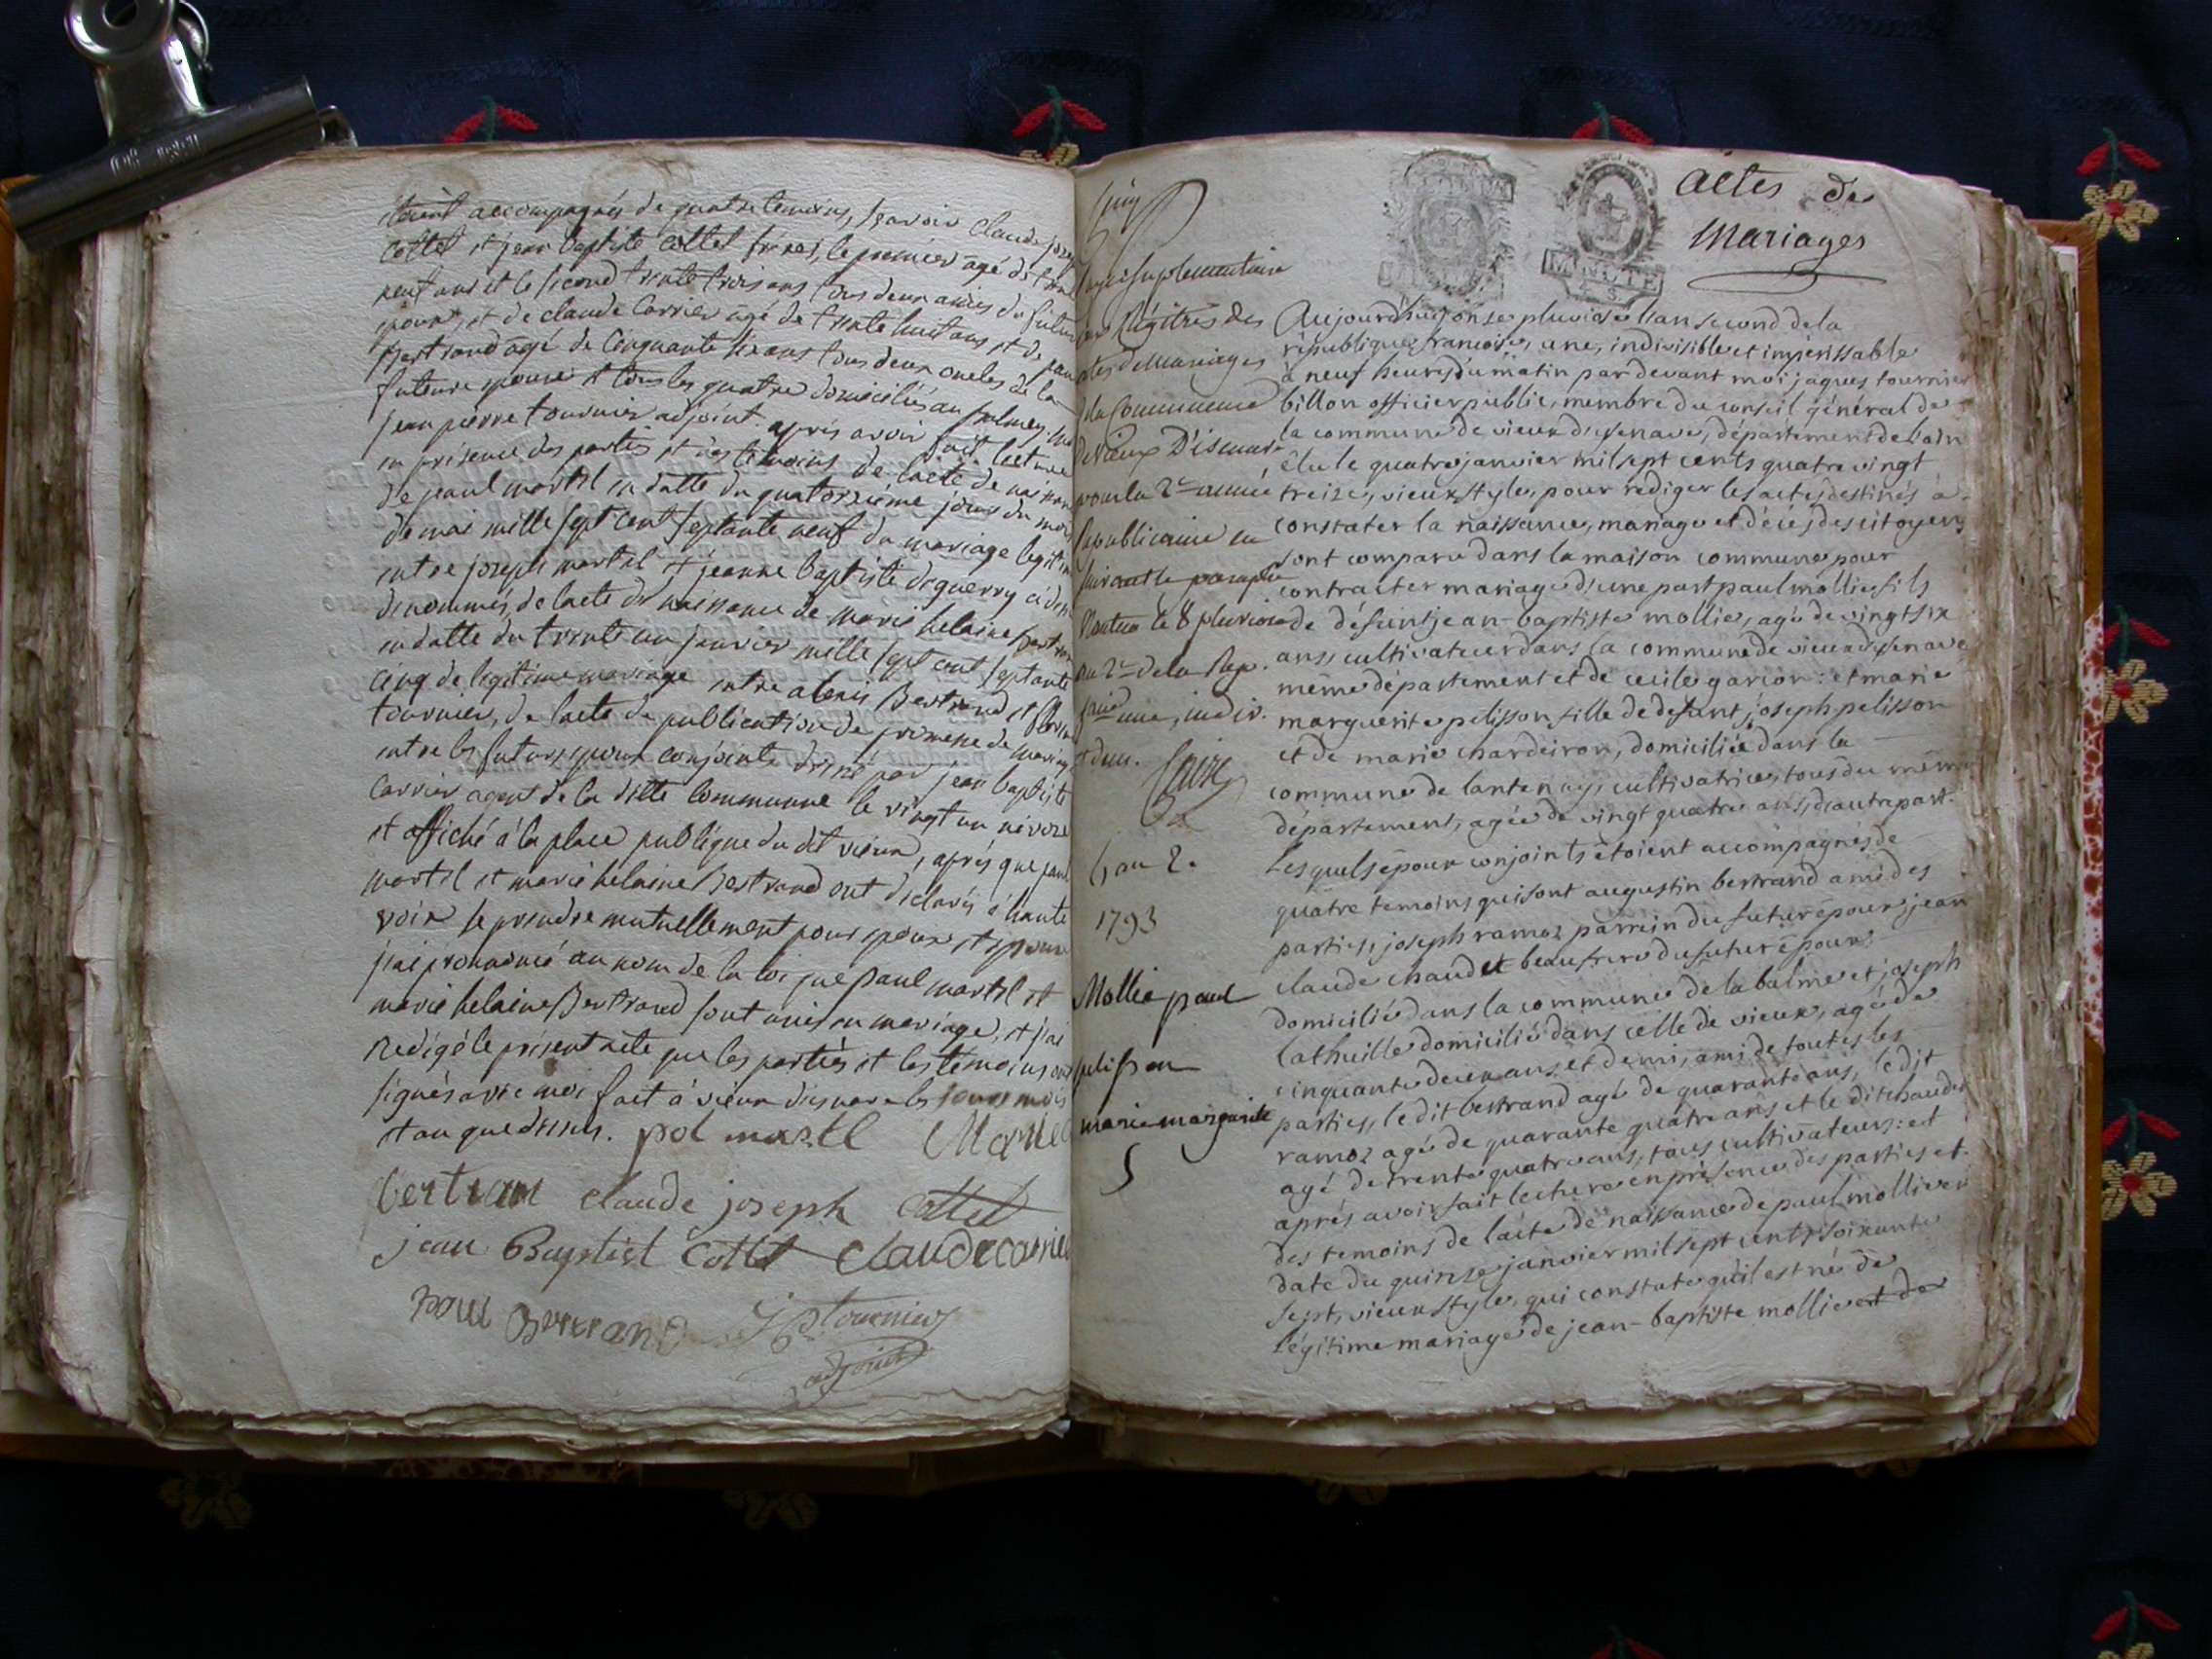 étaient accompagnés de quatre temoins, sçavoir Claude joseph
Cottet et jean baptiste Cottet frères, le premier agé de trente
neuf ans et le second trente trois ans tous deux amies du futur
epoux, et de claude Carrier agé de trente huit ans et de paul
Bertrand agé de Cinquante six ans tous deux oncles de la
future epouse et tous les quatre domiciliés au
jean pierre tournier adjoint. après avoir fait lecture
en présence des parties et des temoins de l'acte de naissance
de paul martel en datte du quatorzième jour du mois
de mai mille sept cent septante neuf du mariage legitime
entre joseph martel et jeanne baptiste deguerry ci dessus
denommés, de lacte de naissance de marie helaine bertrand
en datte du trente un janvier mille sept cent septante
cinq de legitime mariage entre alexis Bertrand et
tournier, de lacte de publication de promesse de mariage
entre les futurs epoux conjoints dressé par jean baptiste
Carrier agent de la ditte Commune le vingt un nivose
et affiché à la place publique du dit vieux, après que paul
martel et marie helaine Bertrand ont declarés à haute
voix se prendre mutuellement pour epoux et epouse
j'ai prononcé au nom de la loi que paul martel et
marie helaine Bertrand sont unis en mariage, et j'ai
redigé le présent acte que les parties et les temoins ont
signés avec moi fait à vieux disenave les jours mois
et an que dessus. pol martel Marie
bertran claude joseph Cottet
jean Baptist Cottet claude carrier
paul Bertrand J p tournier
adjoint
actes de
Mariages
suplementaire
aux Régitres des
actes de Mariages
de la Commune
de Vieux D'isenave
pour la 2e année
républicaine en
suivant le paraphe
Nantua le 8 pluviose
an 2e de la Rep.
une, indiv.
1793
Mollie paul
pelisson
marie margueritte
5
Aujourd'huy onze pluviose l'an second de la
république françoise, une, indivisible et impérissable
à neuf heures du matin par devant moi jaques tournier
billon officier public, membre du conseil général de
la commune de vieux d'isenave, département de l'ain
élu le quatre janvier mil sept cents quatre vingt
treize, vieux style, pour rediger les actes destinés à
constater la naissance, mariage et décès des citoyens
sont comparu dans la maison commune pour
contracter mariage d'une part paul mollie fils
de défunt jean-baptiste mollie, agé de vingt six
ans, cultivateur dans la commune de vieux d'isenave
même département et de cecile garçon : et marie
marguerite pelisson fille de defunt joseph pelisson
et de marie chardeiron, domiciliée dans la
commune de lantenay, cultivatrice, tous du même
département, agée de vingt quatre ans, d'autre part.
Lesquels époux conjoints étoient accompagnés de
quatre temoins qui sont augustin bertrand ami des
parties, joseph ramoz parrein du futur époux, jean
claude chaudet beaufrere du futur époux
domicilié dans la commune de la balme et joseph
lathuille domicilié dans celle de vieux, agé de
cinquante deux ans et demi, ami de toutes les
parties, le dit bertrand agé de quarante ans, le dit
ramoz agé de quarante quatre ans et le dit chaudet
agé de trente quatre ans, tous cultivateurs: et
après avoir fait lecture en présence des parties et
des temoins de l'acte de naissance de paul mollie en
date du quinze janvier mil sept cents soixante
sept, vieux style, qui constate qu'il est né de
légitime mariage de jean-baptiste mollie et de